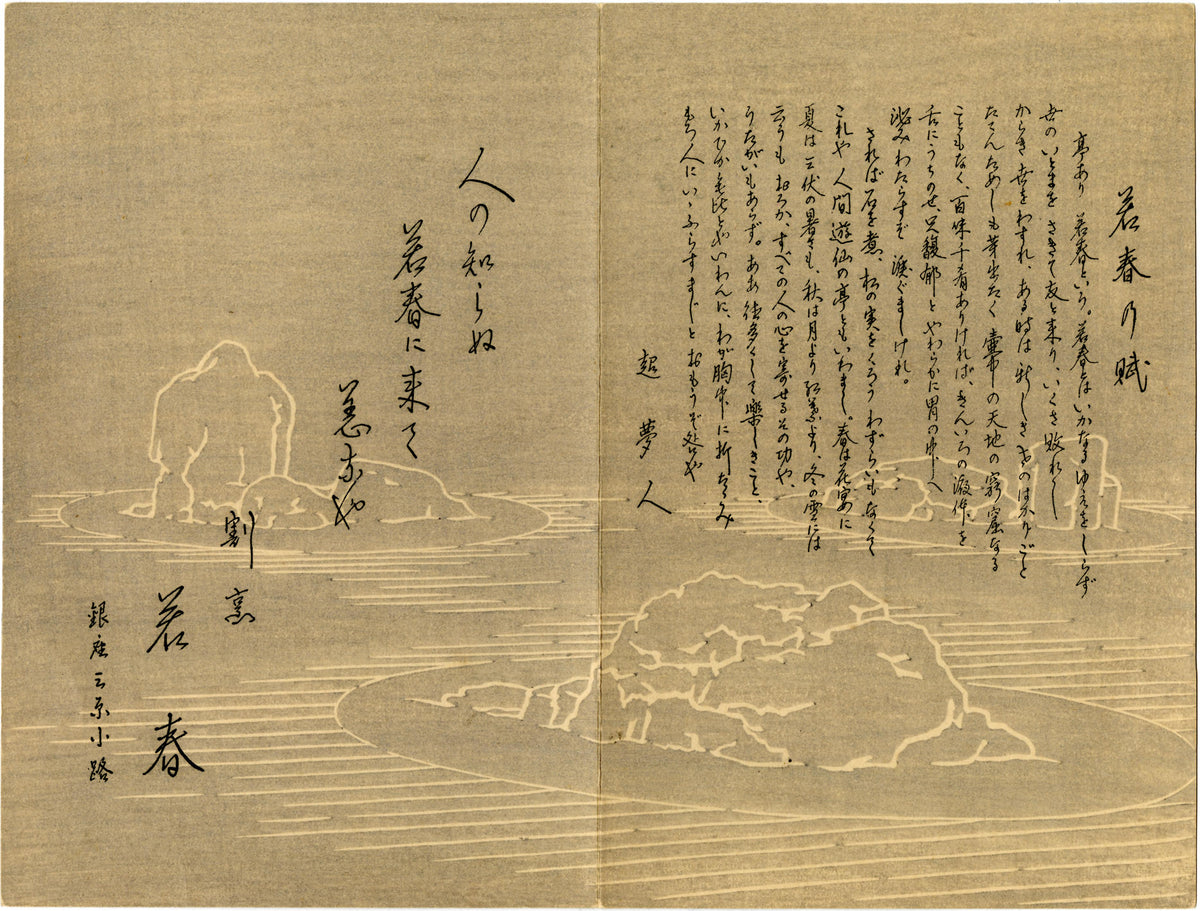 若春の賦
亭あり 若春といふ。若春とはいかなるゆえをしらず
世のいとまを さきて友と来り、いくさ敗れし
からき世をわすれ、ある時は 新しきもののはかりごと
たてんためしも芽出たく 壷中の天地の窮窟なる
こともなく、百味千肴ありければ、きんいろの液体を
舌にうちのせ、只馥郁と やわらかに胃の中へ
沁みわたらすぞ 涙ぐましけれ。
されば 石を煮、松の実をくろう わずらいもなくて
これや 人間遊仙の亭ともいわまし。春は花宴に
夏は 三伏の暑さも、秋は月より紅葉より、冬の雪には
云うも おろか、すべての人の心を寄せるその功や、
うたがいもあらず。ああ 徳多くして楽しきこと、
いかひか といわんに、わが胸中に折たゝみ
もち 人にいゝふらすまじと おもうぞ
超夢人
人の知らぬ
若春に来て
割烹
若春
銀座三原小路